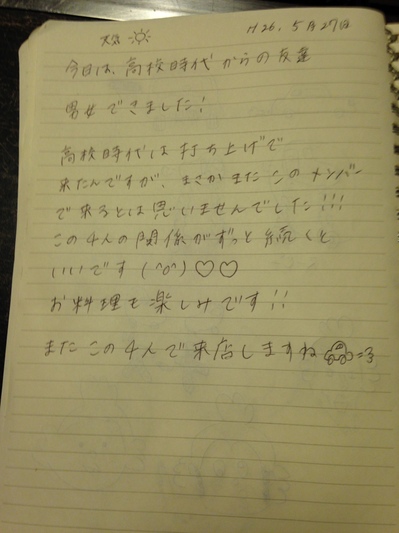 天気 H26. 5月27日
今日は、高校時代からの友達
男女できました!
高校時代は打ち上げで
来たんですが、まさかまたこのメンバー
で来るとは思いませんでした!!!
この4人の関係がずっと続くと
いいです (^o^)♡♡
お料理も楽しみです!!
またこの4人で来店しますね =3